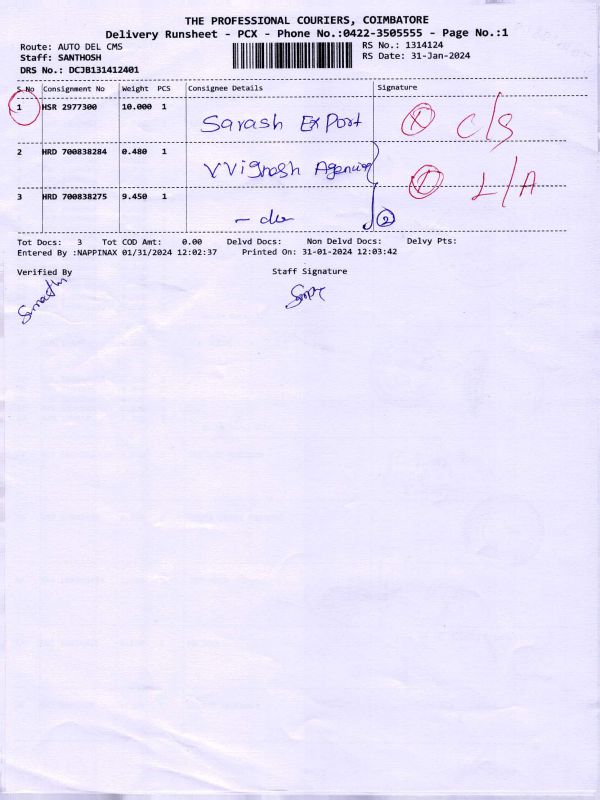 THE PROFESSIONAL COURIERS, COIMBATORE
Delivery Runsheet - PCX - Phone No.:0422-3505555 - Page No.:1
Route: AUTO DEL CMS RS No.: 1314124
Staff: SANTHOSH RS Date: 31-Jan-2024
DRS No.: DCJB131412401
S No Consignment No Weight PCS Consignee Details Signature
1 HSR 2977300 10.000 1
Sarash Export X C/S
2 HRD 700838284 0.480 1
VVignash Agencies L/A
3 HRD 700838275 9.450 1
- do 2
Tot Docs: 3 Tot COD Amt: 0.00 Delvd Docs: Non Delvd Docs: Delvy Pts:
Entered By :NAPPINAX 01/31/2024 12:02:37 Printed On: 31-01-2024 12:03:42
Verified By Staff Signature